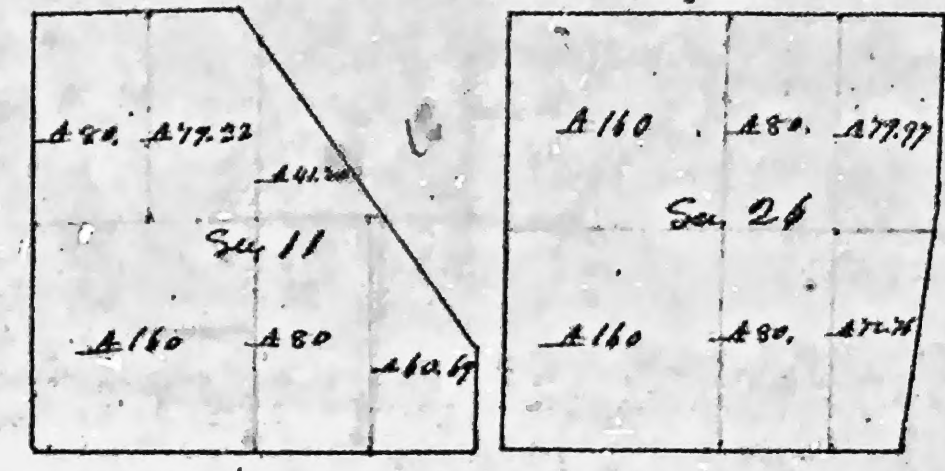 A 80. A 77.22
A 41.20
Sec 11
A 160 A 80
A 60.69
A 160 A 80. A 79.97
Sec 26
A 160 A 80. A 72.76